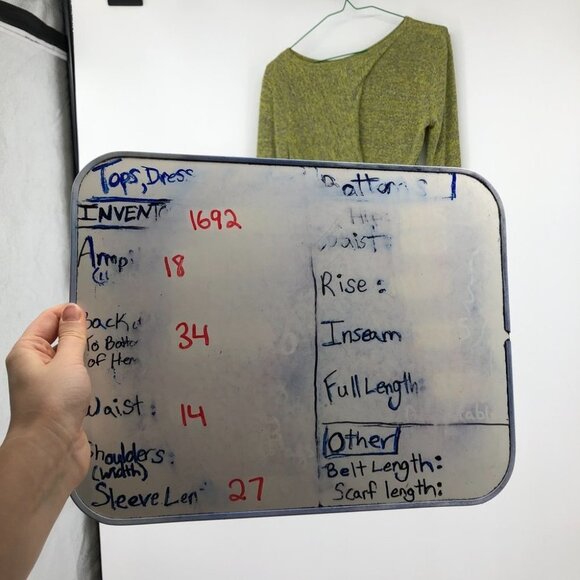 Tops, Dress
INVENT 1692
Armpi 18
Back
To Botto 34
of Hem
Waist: 14
Shoulders:
(width)
Sleeve Len 27
Bottoms
Hips
Waist:
Rise:
Inseam
Full Length
Other
Belt Length:
Scarf length: